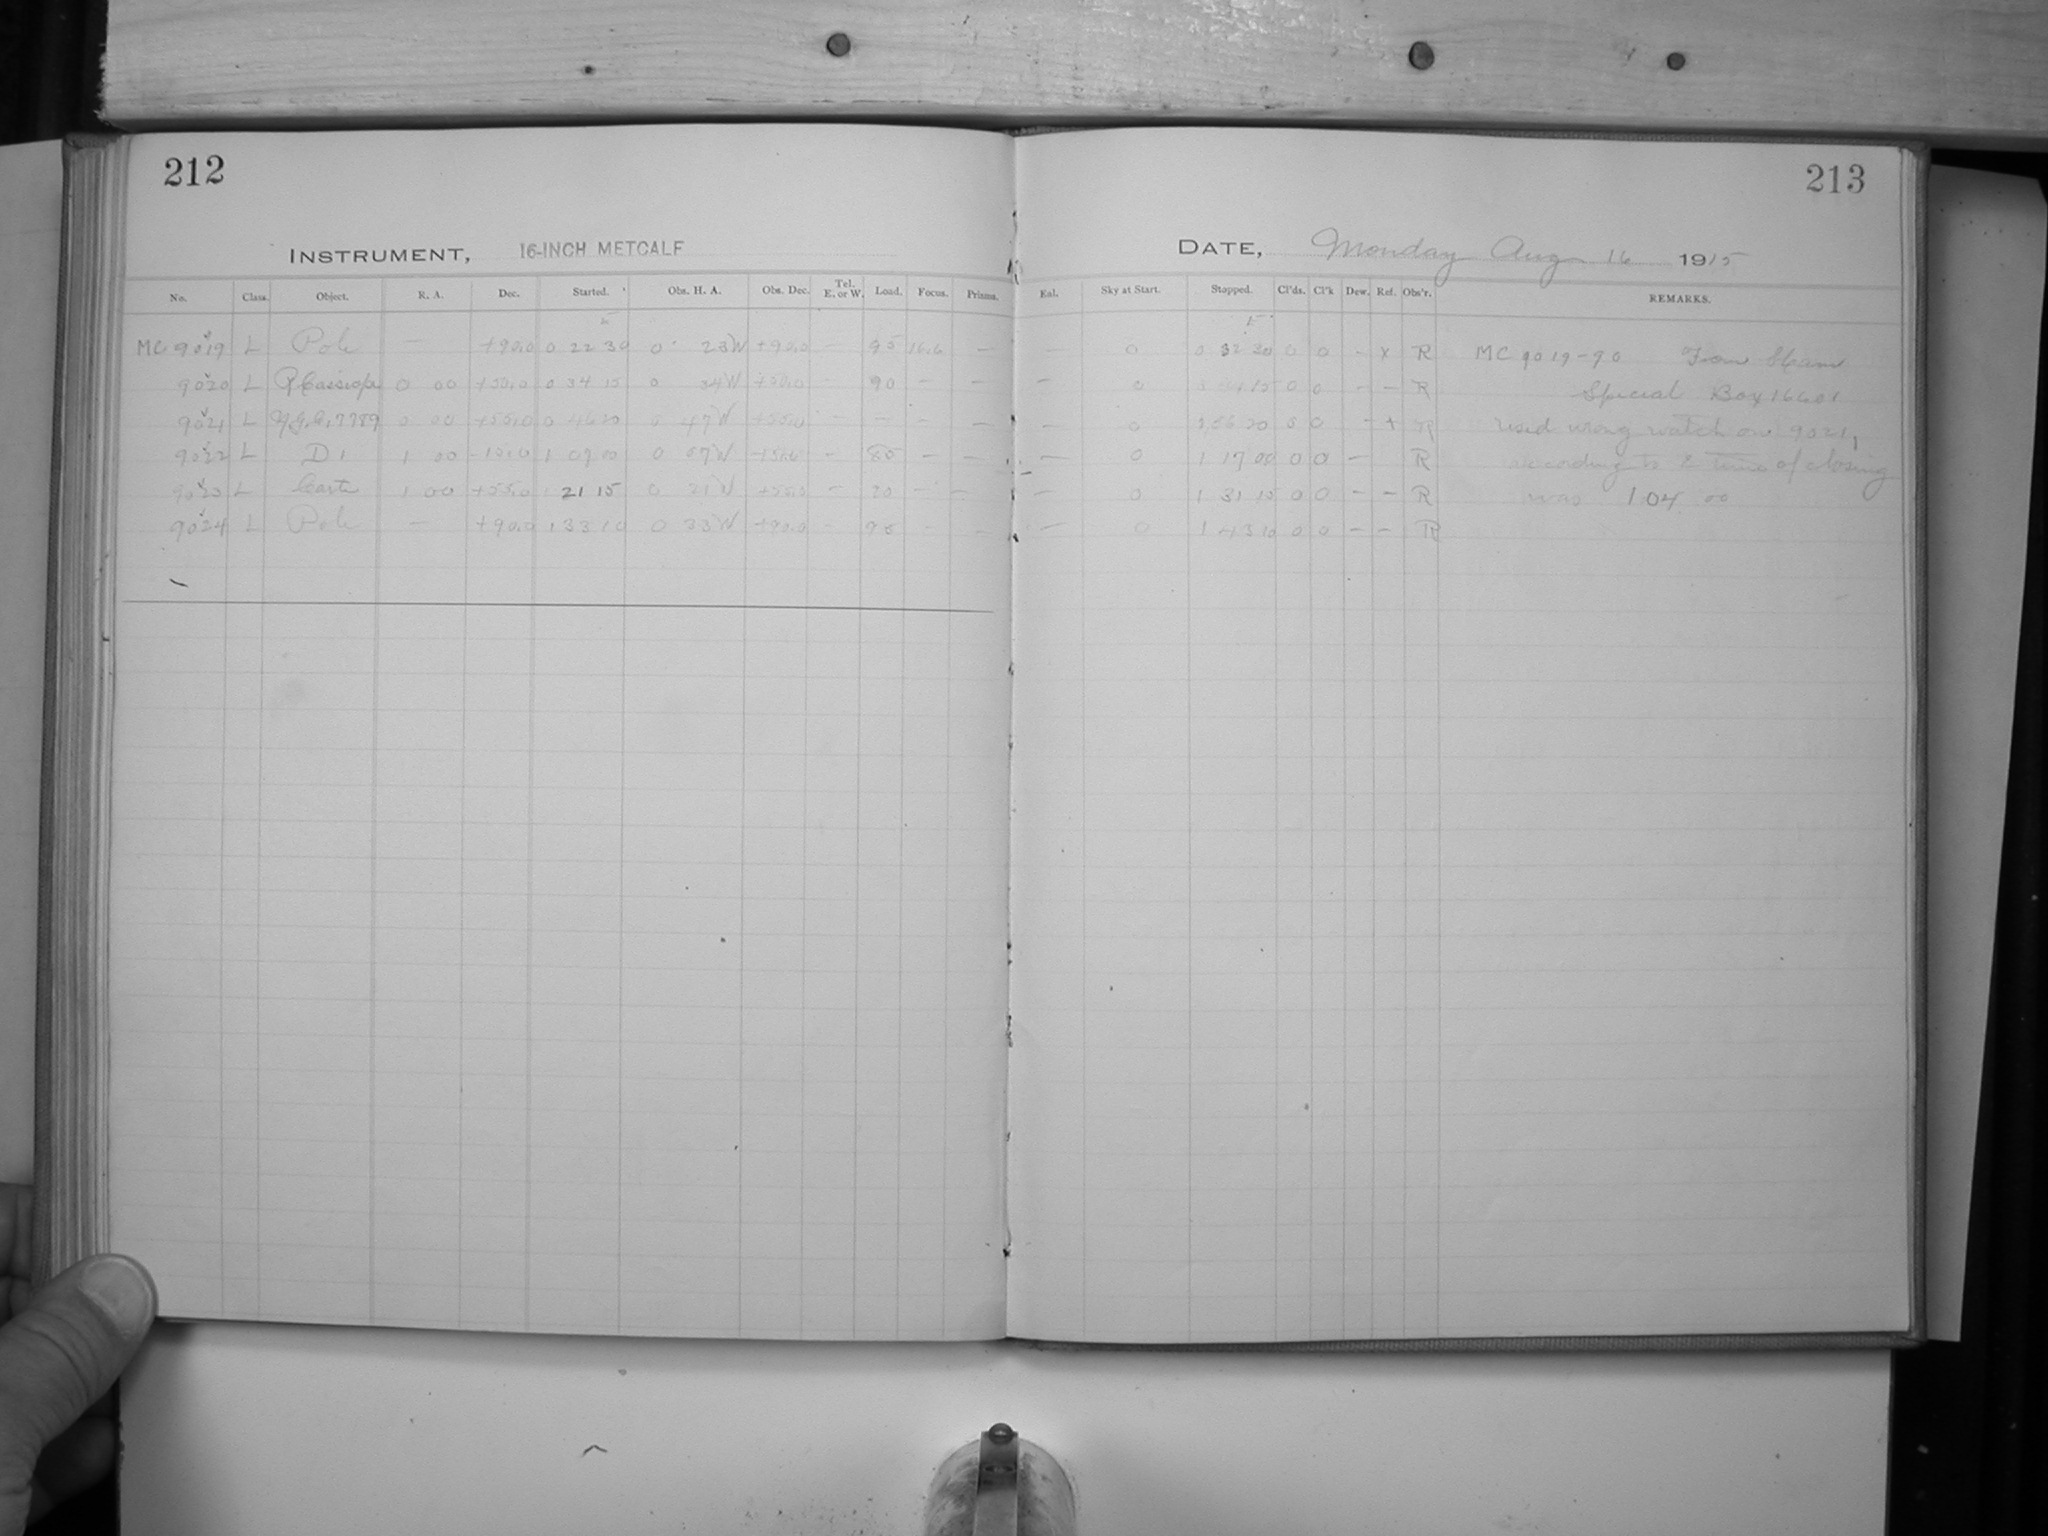 212
213
INSTRUMENT, 16-INCH METCALF
DATE, Monday Aug 16 1915
No. Class. Object. R. A. Dec. Started. Obs. H. A. Obs. Dec. Tel. E. or W. Load. Focus. Prisms.
Eal. Sky at Start. Stopped. Cl'ds. Cl'k Dew. Ref. Obs'r. REMARKS.
MC 9019 L Pole — +90.0 0 22 30 0 23W +90.0 — 90 16.6 —
— 0 0 32 30 0 0 - x R MC 9019-90 From
9020 L 0 00 +50.0 0 34 15 0 34W +50.0 - 90 - -
— 0 15 0 0 - - R Special Box 16601
9021 L 7789 0 00 +55.0 0 46 20 0 47W +55.0 - - - -
0 56 20 0 0 - + R used wrong watch on 9021,
9022 L D1 1 00 1 07 00 0 07W - 80 - -
— 0 1 17 00 0 0 — R according to time of closing
9023 L 1 00 +55.0 1 21 15 0 21W +55.0 - 90 - -
— 0 1 31 15 0 0 - - R was 1 04 00
9024 L Pole — +90.0 1 33 10 0 33W +90.0 - 90 - -
— 0 1 43 10 0 0 - - R